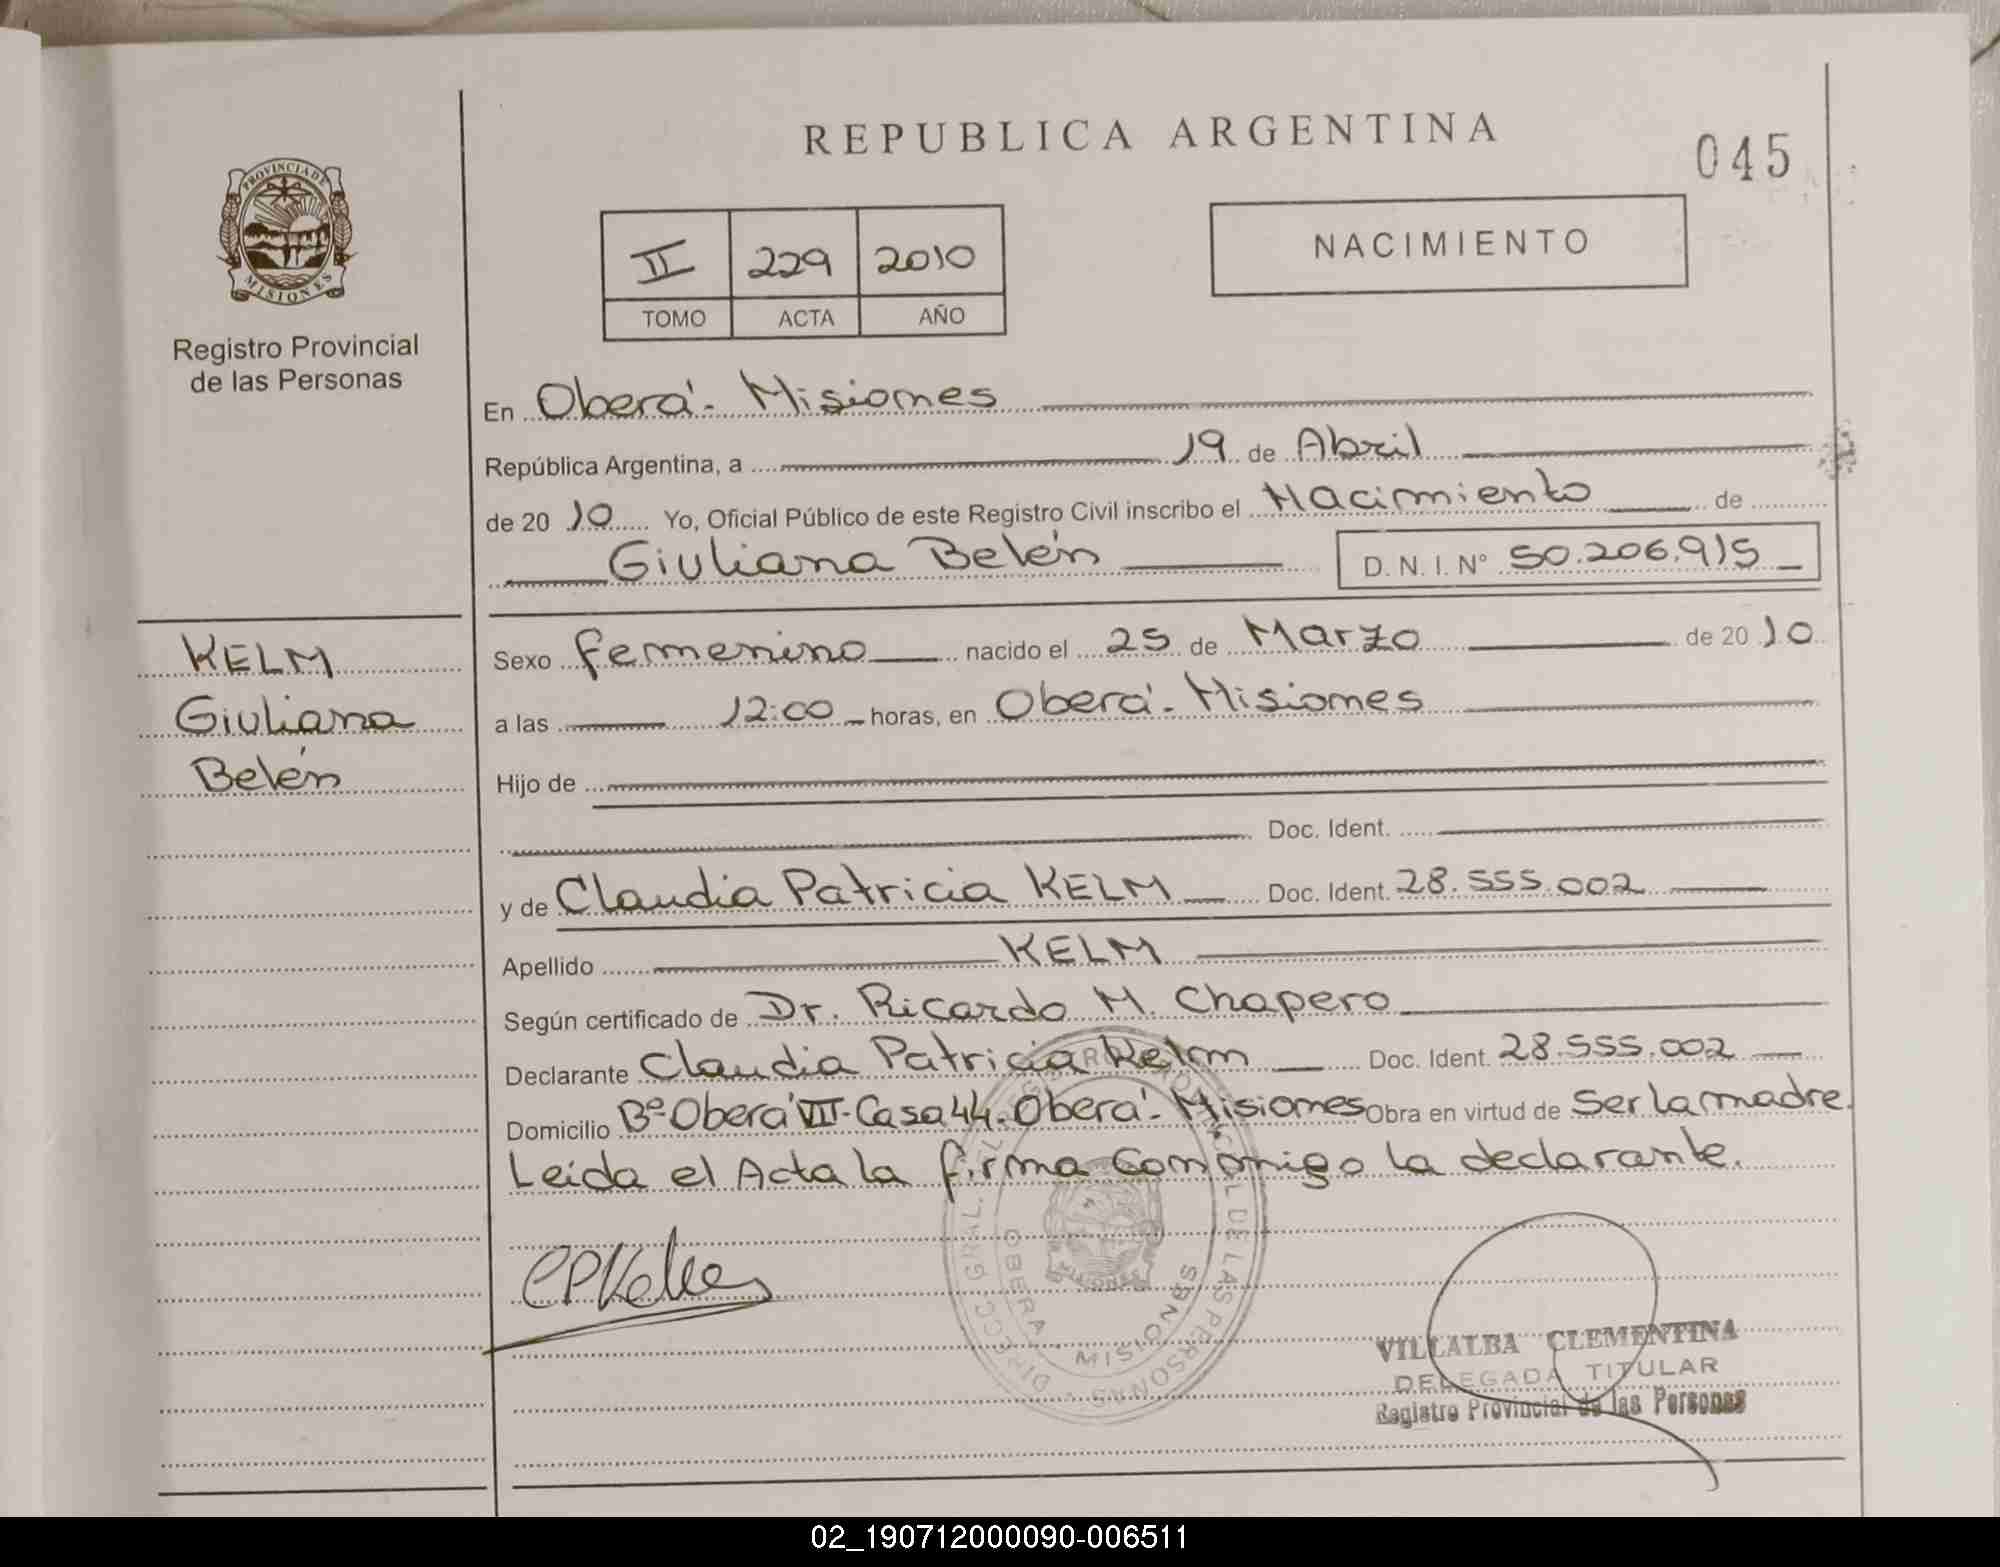 REPUBLICA ARGENTINA
045
PROVINCIA DE
MISIONES
Registro Provincial
de las Personas
II 229 2010
TOMO ACTA AÑO
NACIMIENTO
En Oberá - Misiones
República Argentina, a 19 de Abril
de 20 10 Yo, Oficial Público de este Registro Civil inscribo el Nacimiento de
Giuliana Belén D. N. I. Nº 50.206.915
KELM
Giuliana
Belén
Sexo femenino nacido el 25 de Marzo de 20 10
a las 12:00 horas, en Oberá - Misiones
Hijo de
Doc. Ident.
y de Claudia Patricia KELM Doc. Ident. 28.555.002
Apellido KELM
Según certificado de Dr. Ricardo M. Chapero
Declarante Claudia Patricia Kelm Doc. Ident. 28.555.002
Domicilio Bº Oberá VII - Casa 44. Oberá - Misiones Obra en virtud de Ser la madre.
Leída el Acta la firma conmigo la declarante.
OBERA MISIONES
VILLALBA CLEMENTINA
DELEGADA TITULAR
Registro Provincial de las Personas
02_190712000090-006511